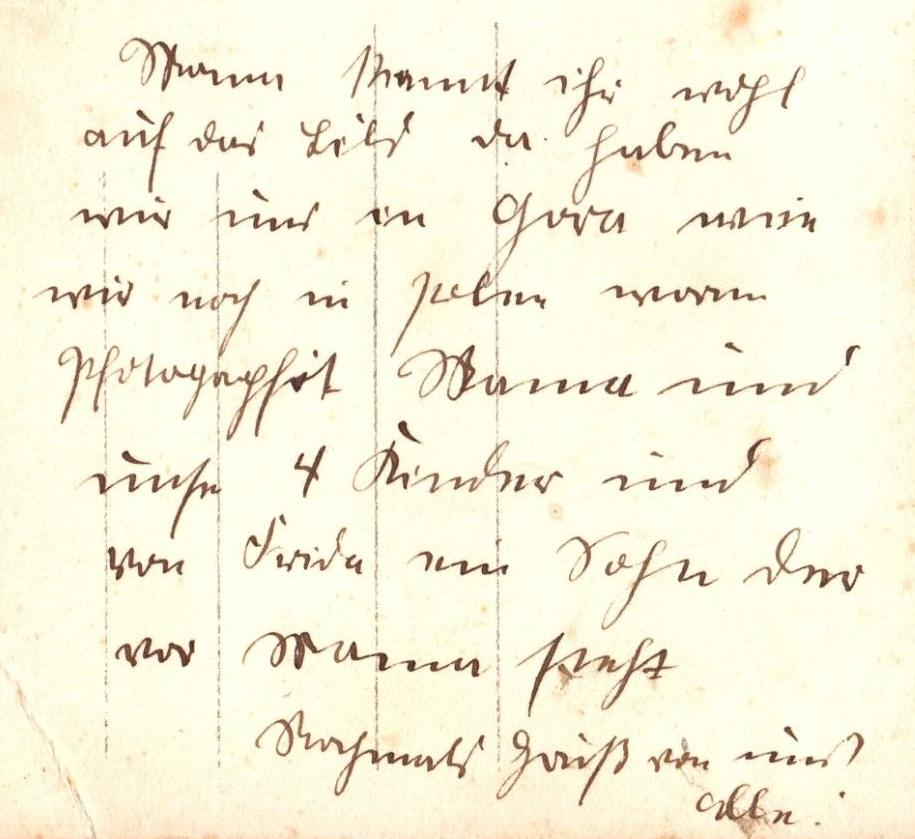 Mama kennt ihr wohl
auf das Bild da haben
wir uns in Gora wie
wir noch in Polen waren
Photograpfiert Mama und
unse 4 Kinder und
von Frida ein Sohn der
vor Mama steht
Nochmals Gruß von uns
alle.